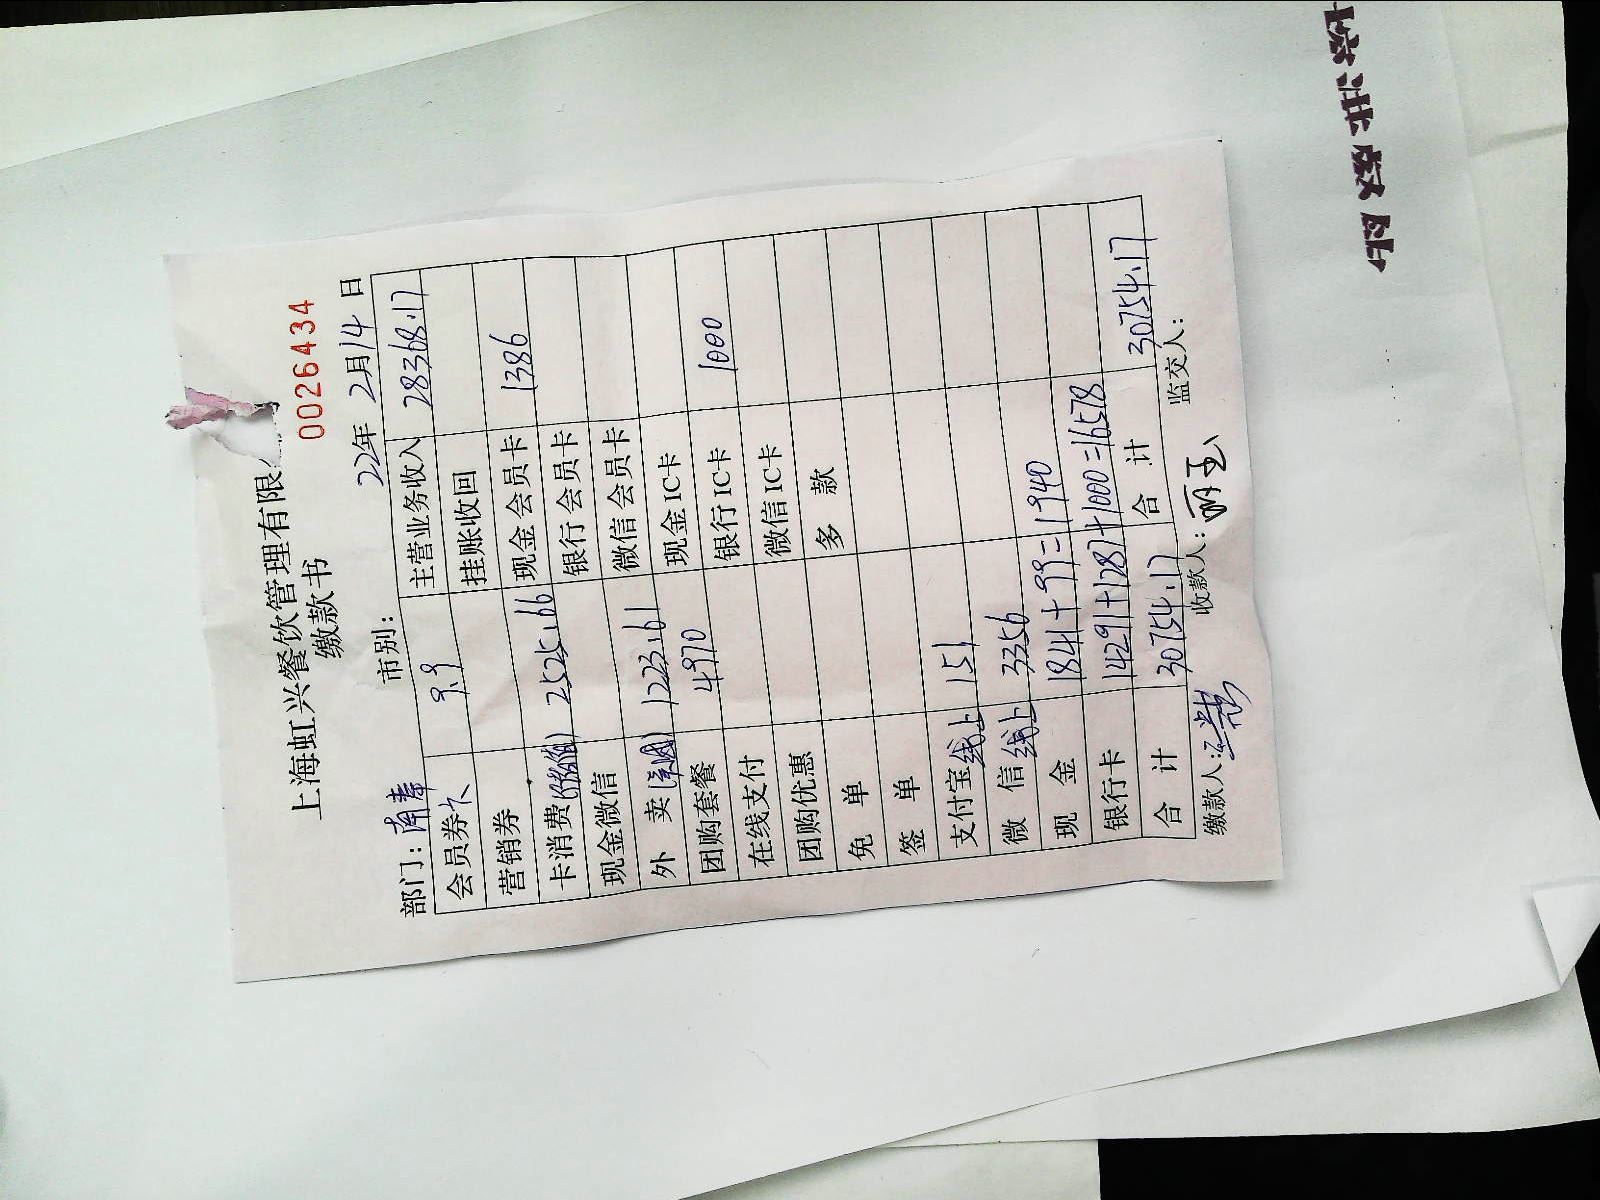 上海虹兴餐饮管理有限
缴款书
0026434
部门: 南奉 市别: 22年 2月14日
会员券卡 9.9 主营业务收入 28368.17
营销券 挂账收回
卡消费 2525.66 现金会员卡 1386
现金微信 银行会员卡
外 卖 1223.61 微信会员卡
团购套餐 4970 现金IC卡
在线支付 银行IC卡 1000
团购优惠 微信IC卡
免 单 多 款
签 单
支付宝线上 151
微 信线上 3356
现 金 1841+99=1940
银行卡 14291+1287+1000=16578
合 计 30754.17 合 计 30754.17
缴款人: 收款人: 丽玉 监交人: